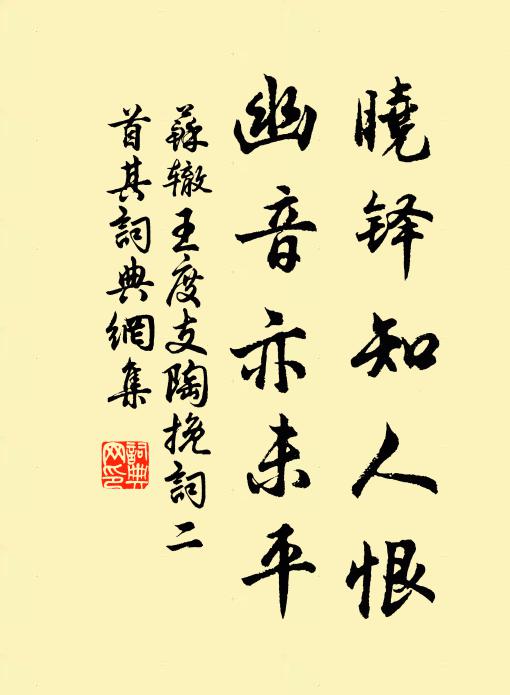 曉铎知人恨
幽音亦未平
蘇辙王度支陶挽詞二
首其詞典網集
詞典
网印